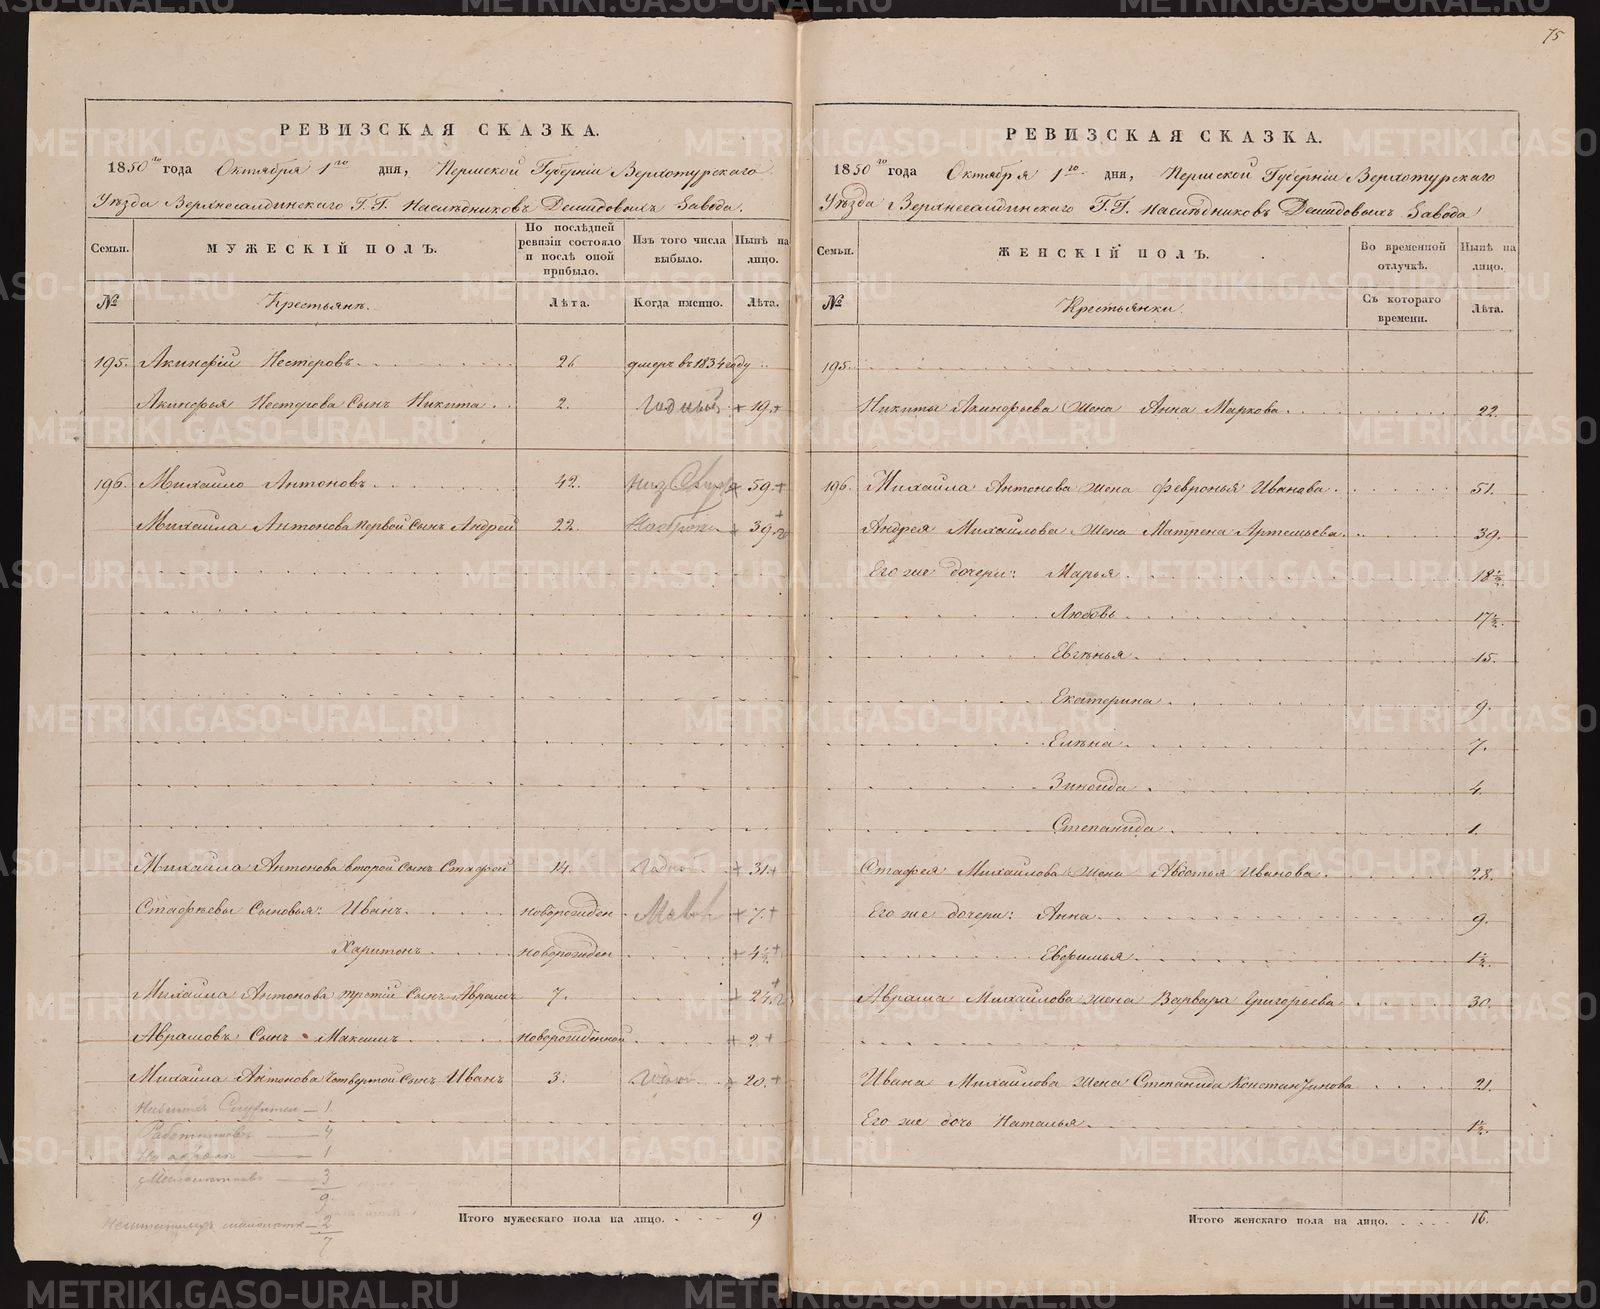 75
РЕВИЗСКАЯ СКАЗКА.
1850го года Октября 1го дня, Пермской Губерніи Верхотурскаго
Уѣзда Верхнесалдинскаго Г.Г. Наслѣдниковъ Демидовыхъ Завода.
Семьи. МУЖЕСКІЙ ПОЛЪ. По послѣдней ревизіи состояло и послѣ оной прибыло. Изъ того числа выбыло. Нынѣ на лицо.
№ Крестьянъ. Лѣта. Когда именно. Лѣта.
195. Акинфій Нестеровъ 26 умеръ въ 1834 году
Акинфья Нестерова Сынъ Никита 2. Годный + 19. +
196. Михайло Антоновъ 42. + 59. +
Михайла Антонова первой Сынъ Андрей 22. + 39. +
Михайла Антонова второй Сынъ Стафей 14. Годной + 31. +
Стафѣевы Сыновья: Иванъ новорожден + 7. +
Харитонъ новорожден + 4½. +
Михайла Антонова третій Сынъ Аврамъ 7. + 24. +
Аврамовъ Сынъ Максимъ новорожденной + 2 +
Михайла Антонова Четвертой Сынъ Иванъ 3. + 20. +
— 1
Работниковъ — 4
— 1
— 3
9.
— 2
7
Итого мужескаго пола на лицо. 9
РЕВИЗСКАЯ СКАЗКА.
1850го года Октября 1го дня, Пермской Губерніи Верхотурскаго
Уѣзда Верхнесалдинскаго Г.Г. Наслѣдниковъ Демидовыхъ Завода
Семьи. ЖЕНСКІЙ ПОЛЪ. Во временной отлучкѣ. Нынѣ на лицо.
№ Крестьянки. Съ котораго времени. Лѣта.
195.
Никиты Акинфьева Жена Анна Маркова 22.
196. Михайла Антонова жена Февронья Иванова 51.
Андрея Михайлова Жена Матрена Артемьева 39.
Его же дочери: Марья 18½.
Любовь 17½.
Евгѣнья 15.
Екатерина 9.
Елѣна 7.
Зинаида 4.
Степанида 1.
Стафея Михайлова Жена Авдотья Иванова 28.
Его же дочери: Анна 9.
Евфимья 1½.
Аврама Михайлова жена Варвара Григорьева 30.
Ивана Михайлова жена Степанида Константинова 21.
Его же дочь Наталья 1½.
Итого женскаго пола на лицо. 16.
METRIKI.GASO-URAL.RU